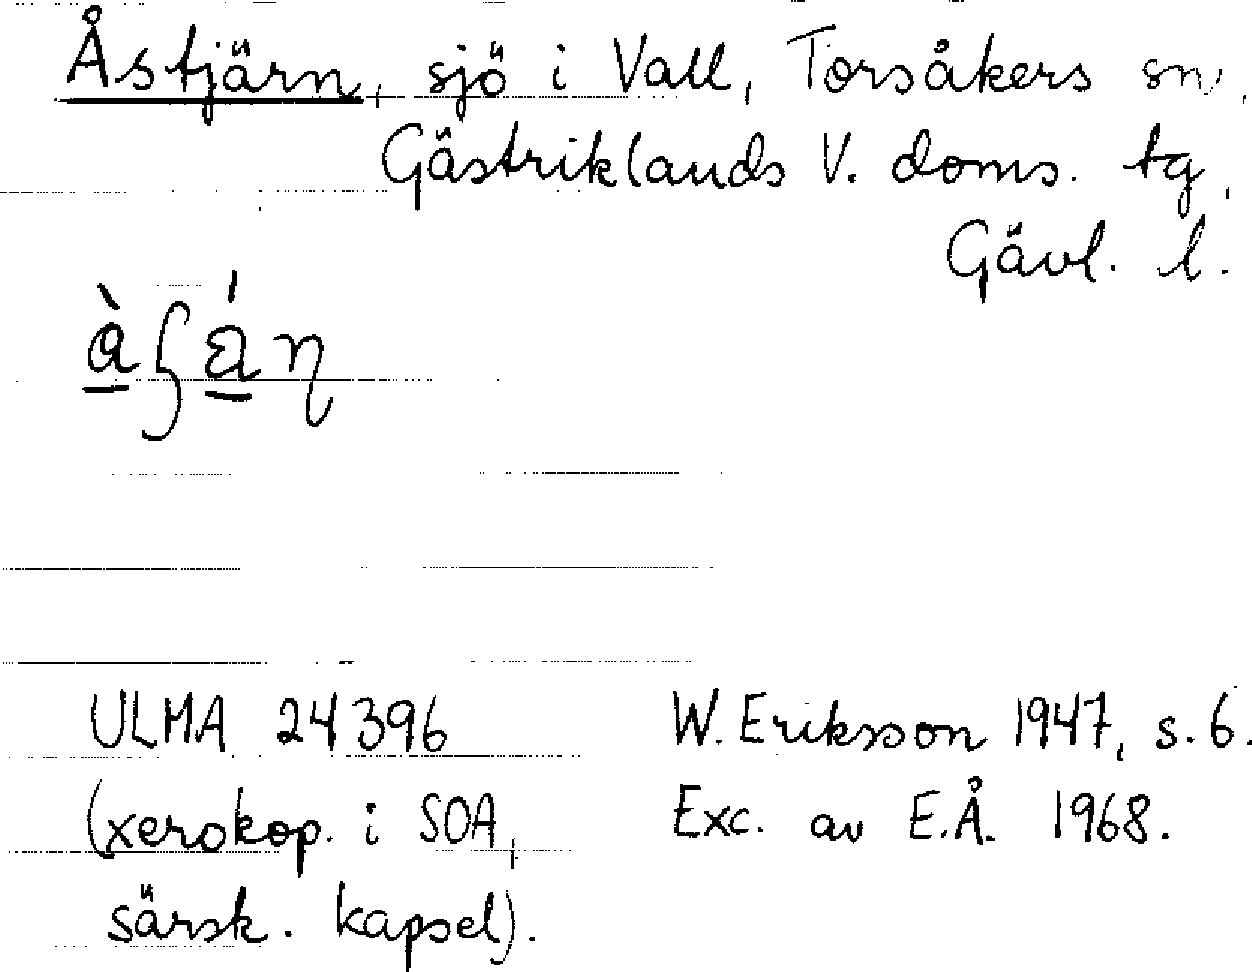 Åstjärn, sjö i Vall, Torsåkers sn,
Gästriklands V. doms. tg,
Gävl. l.
ULMA 24396
(xerokop. i SOA,
särsk. kapsel).
W. Eriksson 1947, s. 6.
Exc. av E.Å. 1968.